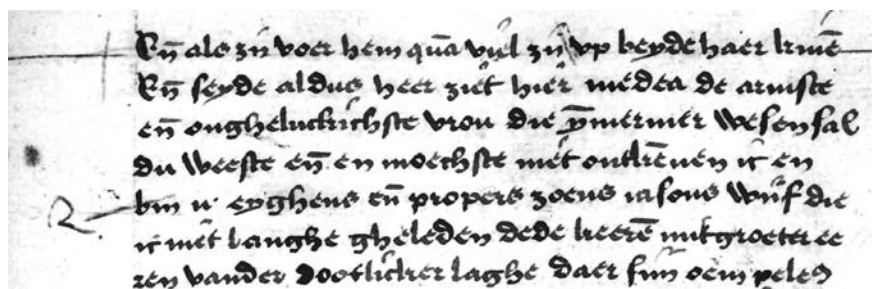 Eñ als zij voer hem quā viel zij vp beyde haer kniē
Eñ seyde aldus heer ziet hier medea de armste
eñ ongheluckichste vrou die ȳmermer wesen sal
du weeste eñ en moechste niet ontkēnen ic en
bin u eyghens eñ propers zoens iasons wijf die
ic niet langhe gheleden dede keerē mit groeter ee
ren vander dootlicker laghe daer sijn oem peleus